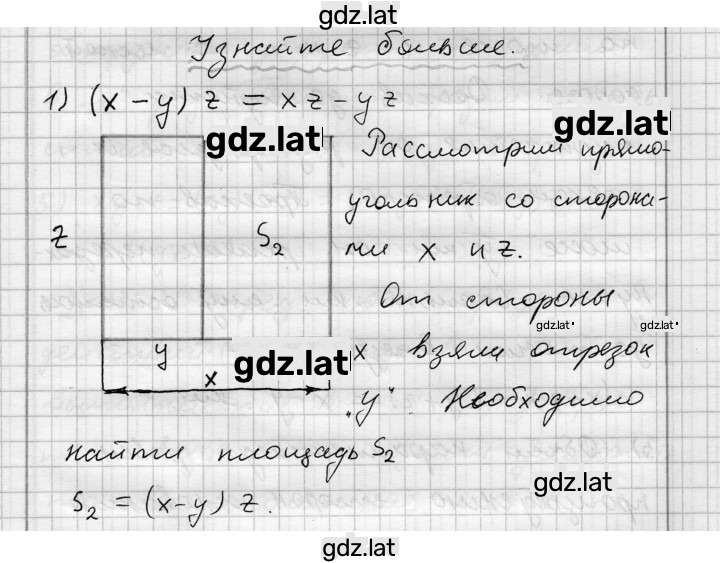 gdz.lat
Узнайте больше.
1) (x - y) z = xz - yz
gdz.lat
gdz.lat
Рассмотрим прямо-
угольник со сторона-
z
S₂
ми x и z.
От стороны
gdz.lat
gdz.lat
y
gdz.lat
x взяли отрезок
x
„y“ Необходимо
найти площадь S₂
gdz.lat
S₂ = (x-y) z.
gdz.lat